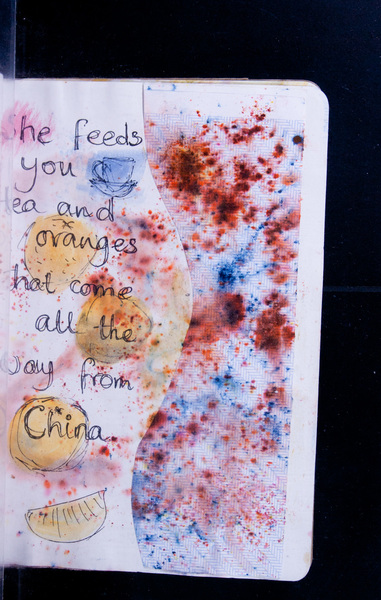 he feeds
you
tea and
oranges
hat come
all the
way from
China